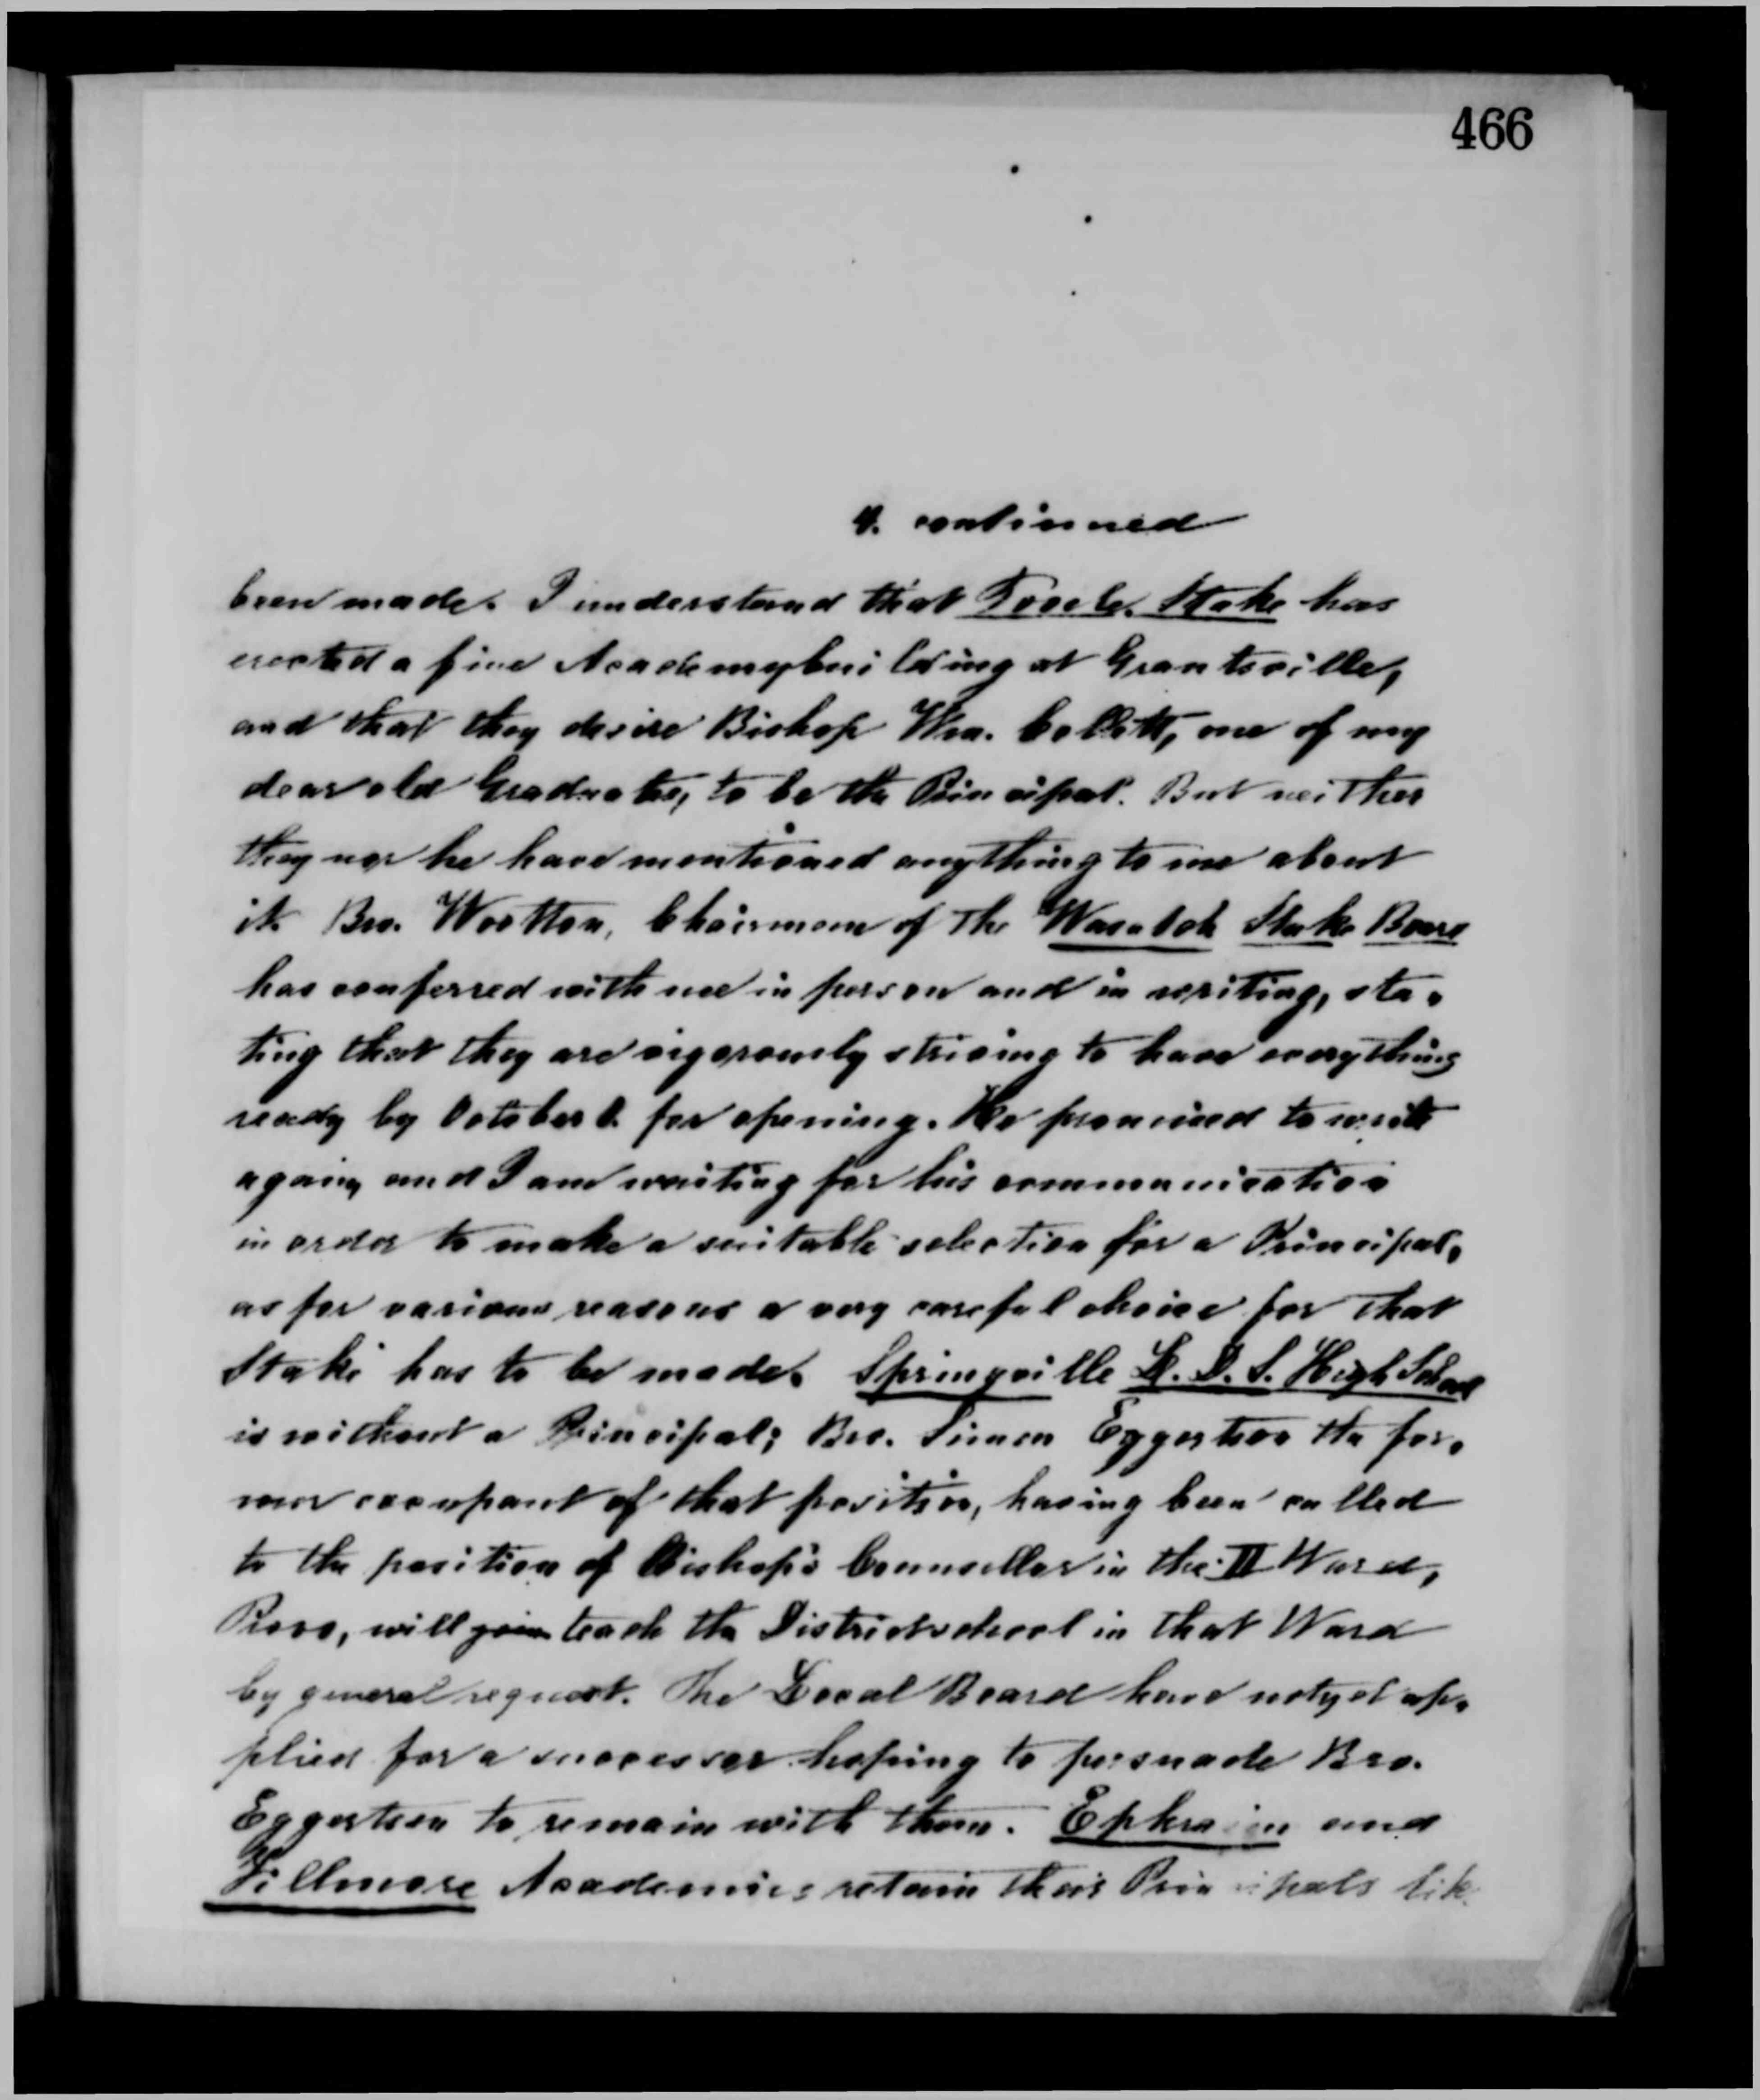 466
4. continued
been made. I understand that Tooele Stake has
erected a fine Academybuilding at Grantsville,
and that they desire Bishop Wm. Collett, one of my
dear old Graduates, to be the Principal. But neither
they nor he have mentioned anything to me about
it. Bro. Wootton, Chairman of the Wasatch Stake Board
has conferred with me in person and in writing, sta-
ting that they are vigorously striving to have everything
ready by October for opening. He promised to write
again, and I am waiting for his communication
in order to make a suitable selection for a Principal,
as for various reasons a very careful choice for that
Stake has to be made. Springville L. D. S. High School
is without a Principal; Bro. Simon Eggertsen the for-
mer occupant of that position, having been called
to the position of Bishop's Counsellor in the II Ward,
Provo, will teach the Districtschool in that Ward
by general request. The Local Board have not yet ap-
plied for a successor hoping to persuade Bro.
Eggertsen to remain with them. Ephraim and
Fillmore Academies retain their Principals